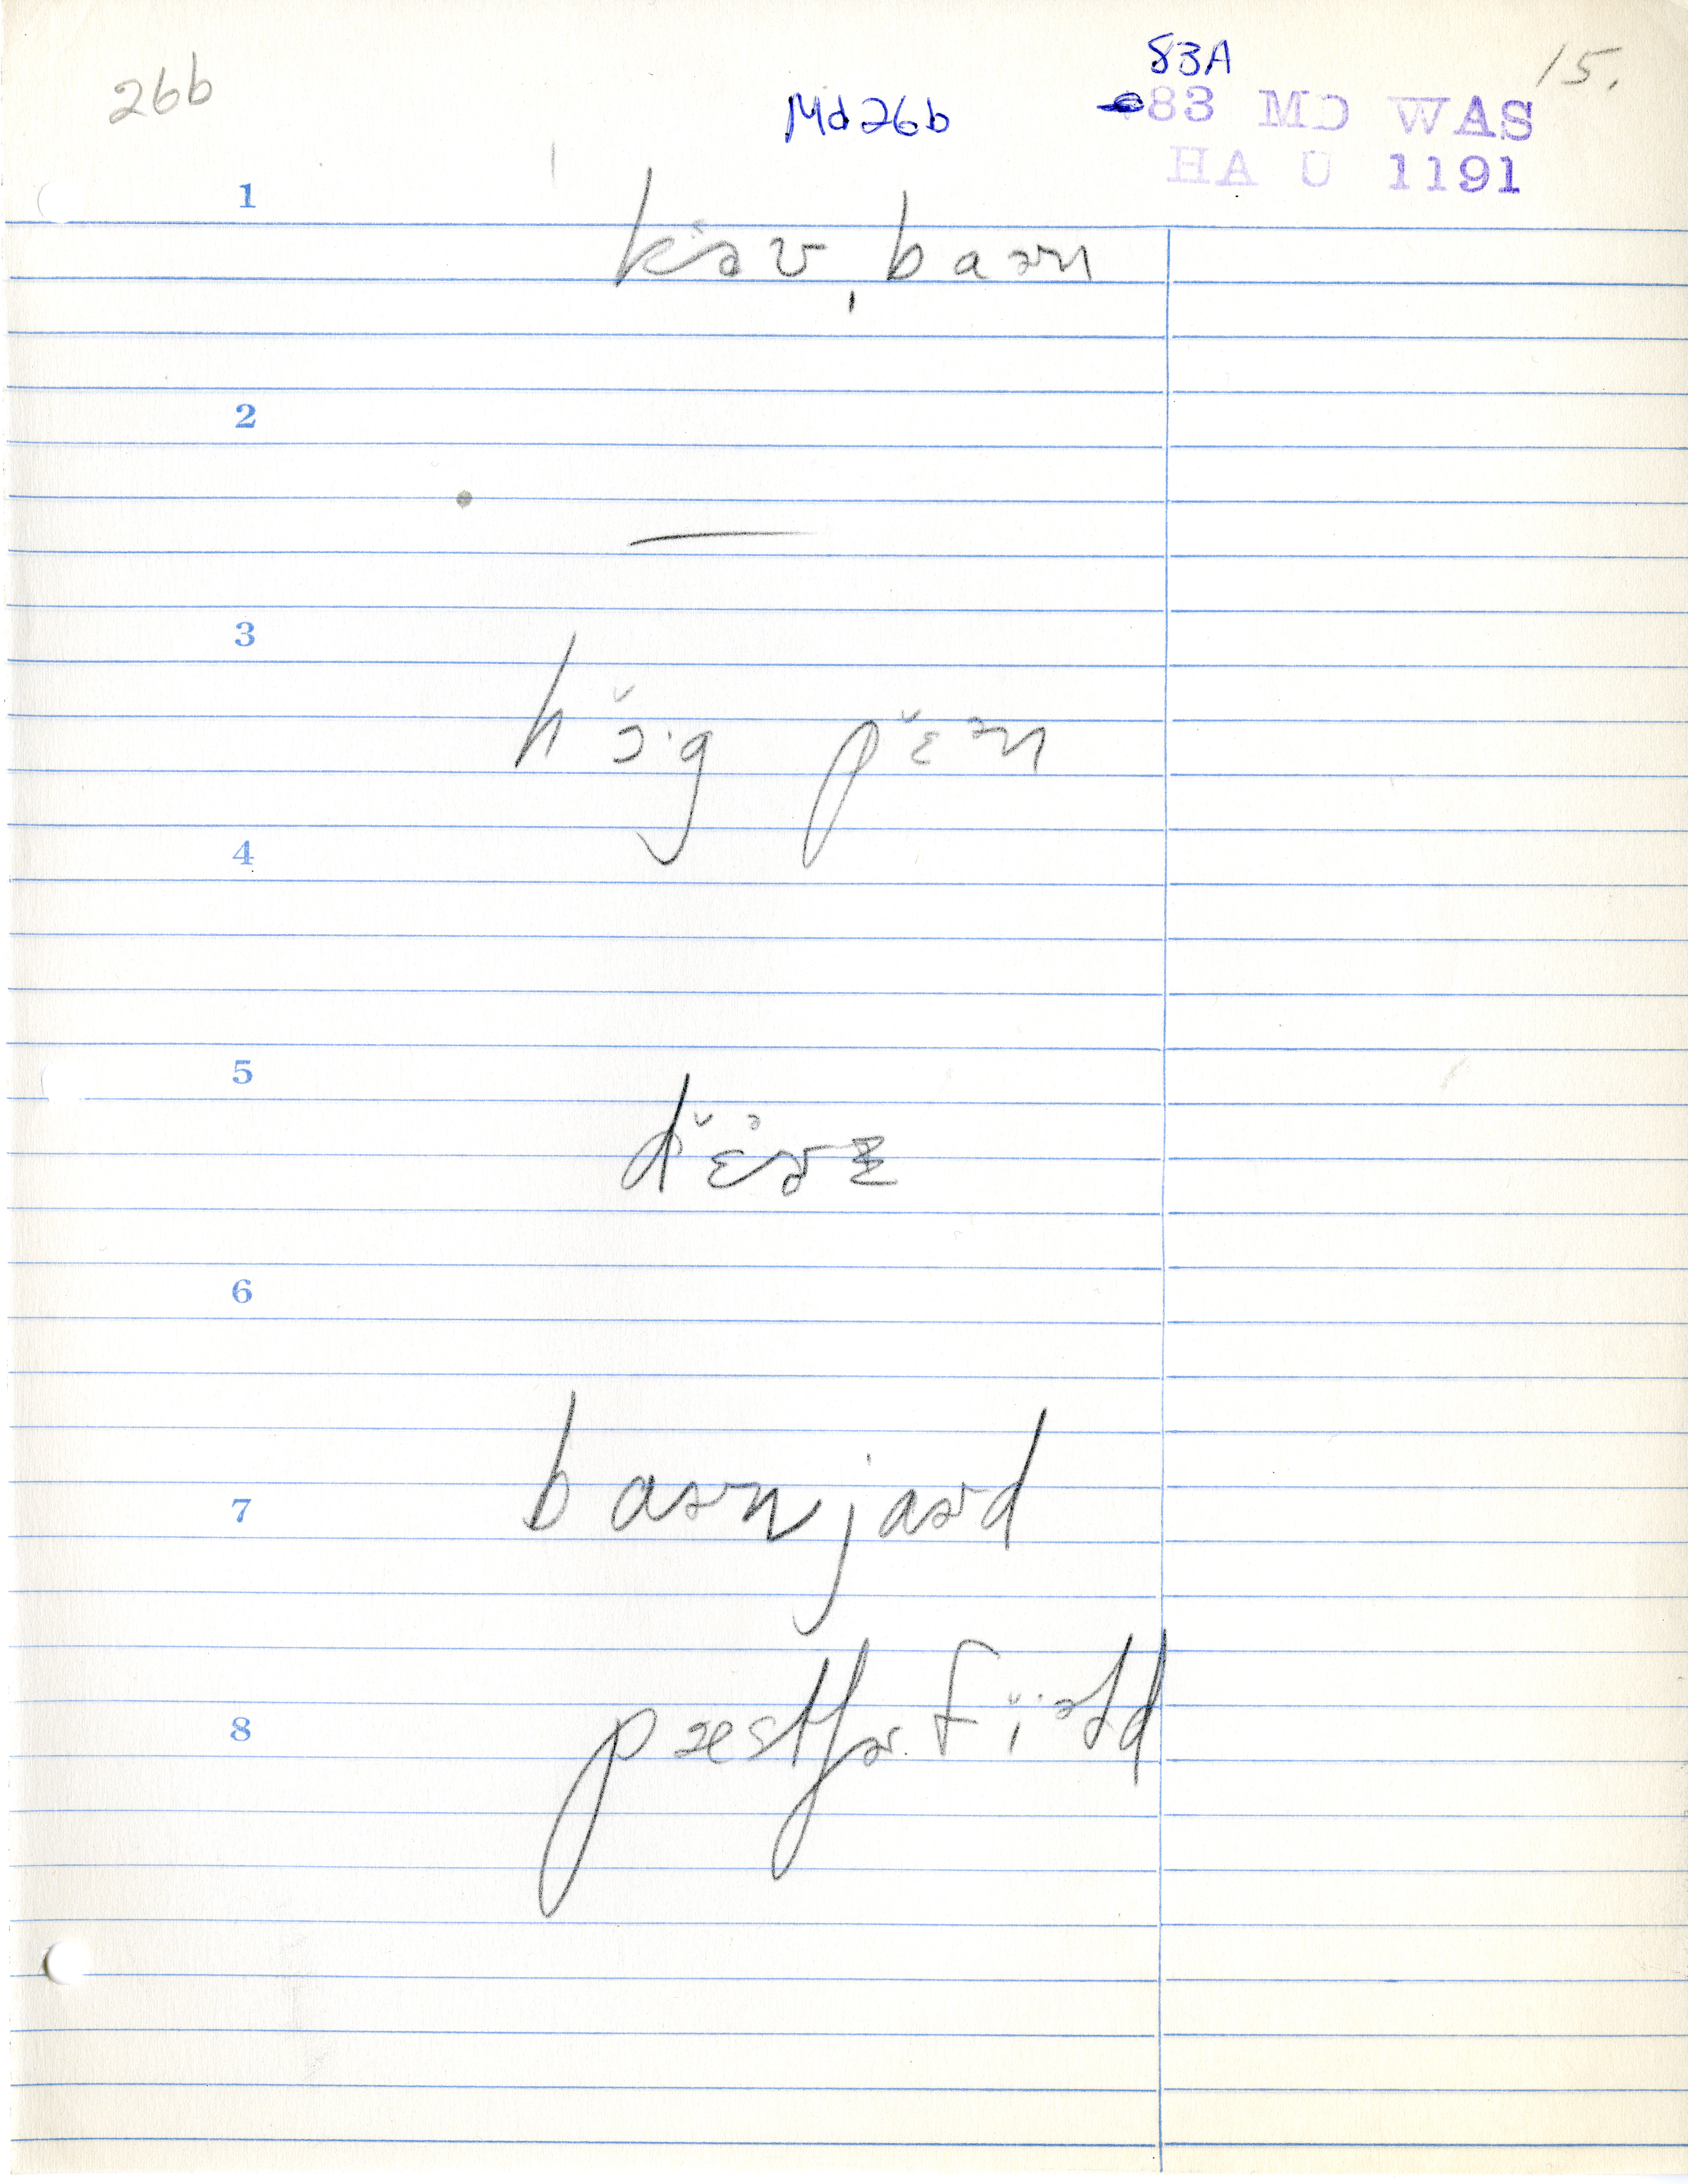 26b
Md26b
83A
15.
83 MD WAS
HA U 1191
1
kɔ̌ɚ ˌbaɚn
2
—
3
hɔ̌·g pɛ̌ən
4
5
dɛ̌ᵊɚɪ
6
baɚnjaɚd
7
pæstʃɚ fɪ̌·əld
8